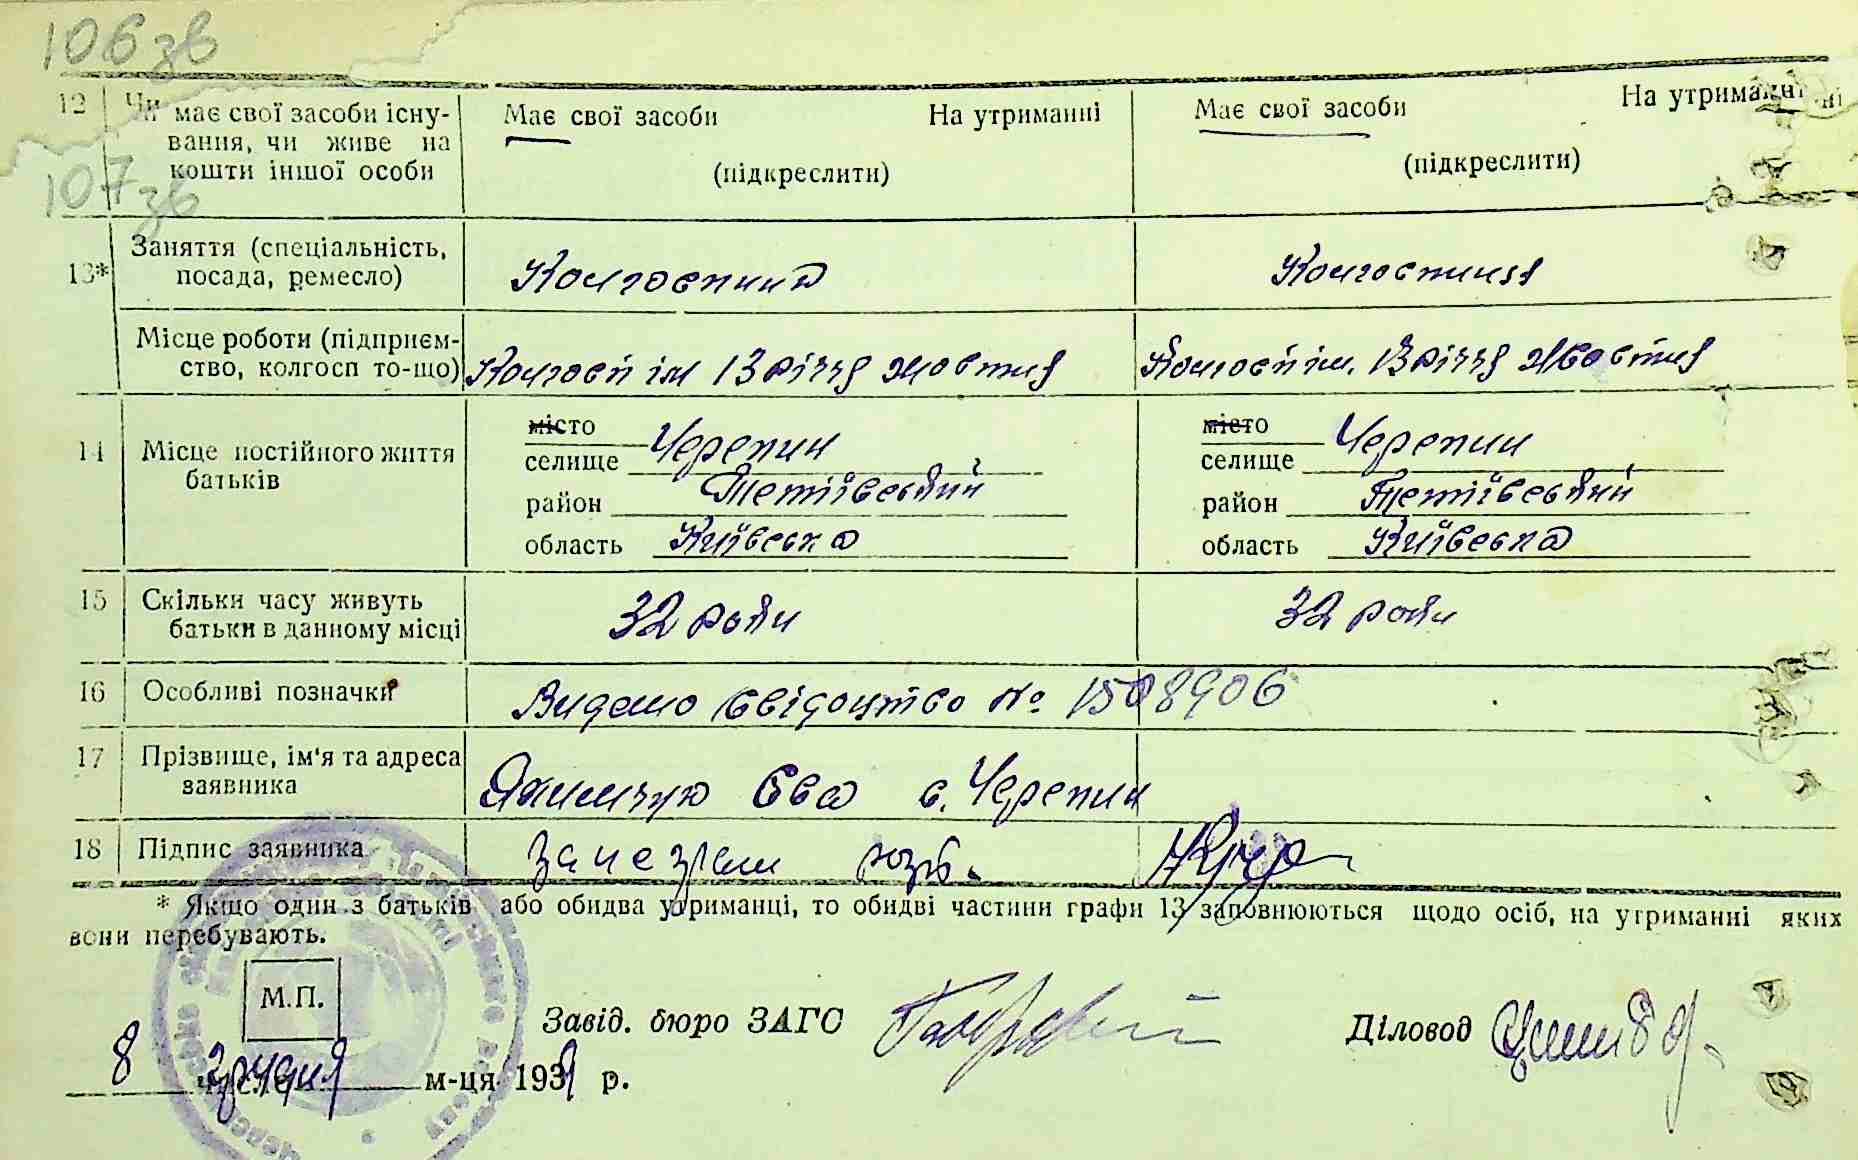 106 зв
12 Чи має свої засоби існу- Має свої засоби На утриманні Має свої засоби На утриманні
вання, чи живе на
кошти іншої особи (підкреслити) (підкреслити)
107 зв
13* Заняття (спеціальність,
посада, ремесло) Колгоспник Колгоспниця
Місце роботи (підприєм-
ство, колгосп то-що) Колгосп ім 13 річчя жовтня Колгосп ім. 13 річчя Жовтня
місто місто
14 Місце постійного життя селище Черепин селище Черепин
батьків район Тетіївський район Тетіївський
область Київська область Київська
15 Скільки часу живуть
батьки в данному місці 32 роки 32 роки
16 Особливі позначки Видано свідоцтво № 1508906
17 Прізвище, ім'я та адреса
заявника Якимчук Єва с. Черепин
18 Підпис заявника за незграм розп.
* Якщо один з батьків або обидва утриманці, то обидві частини графи 13 заповнюються щодо осіб, на утриманні яких
вони перебувають.
М.П.
Завід. бюро ЗАГС Діловод
8 грудня м-ця 193 р.